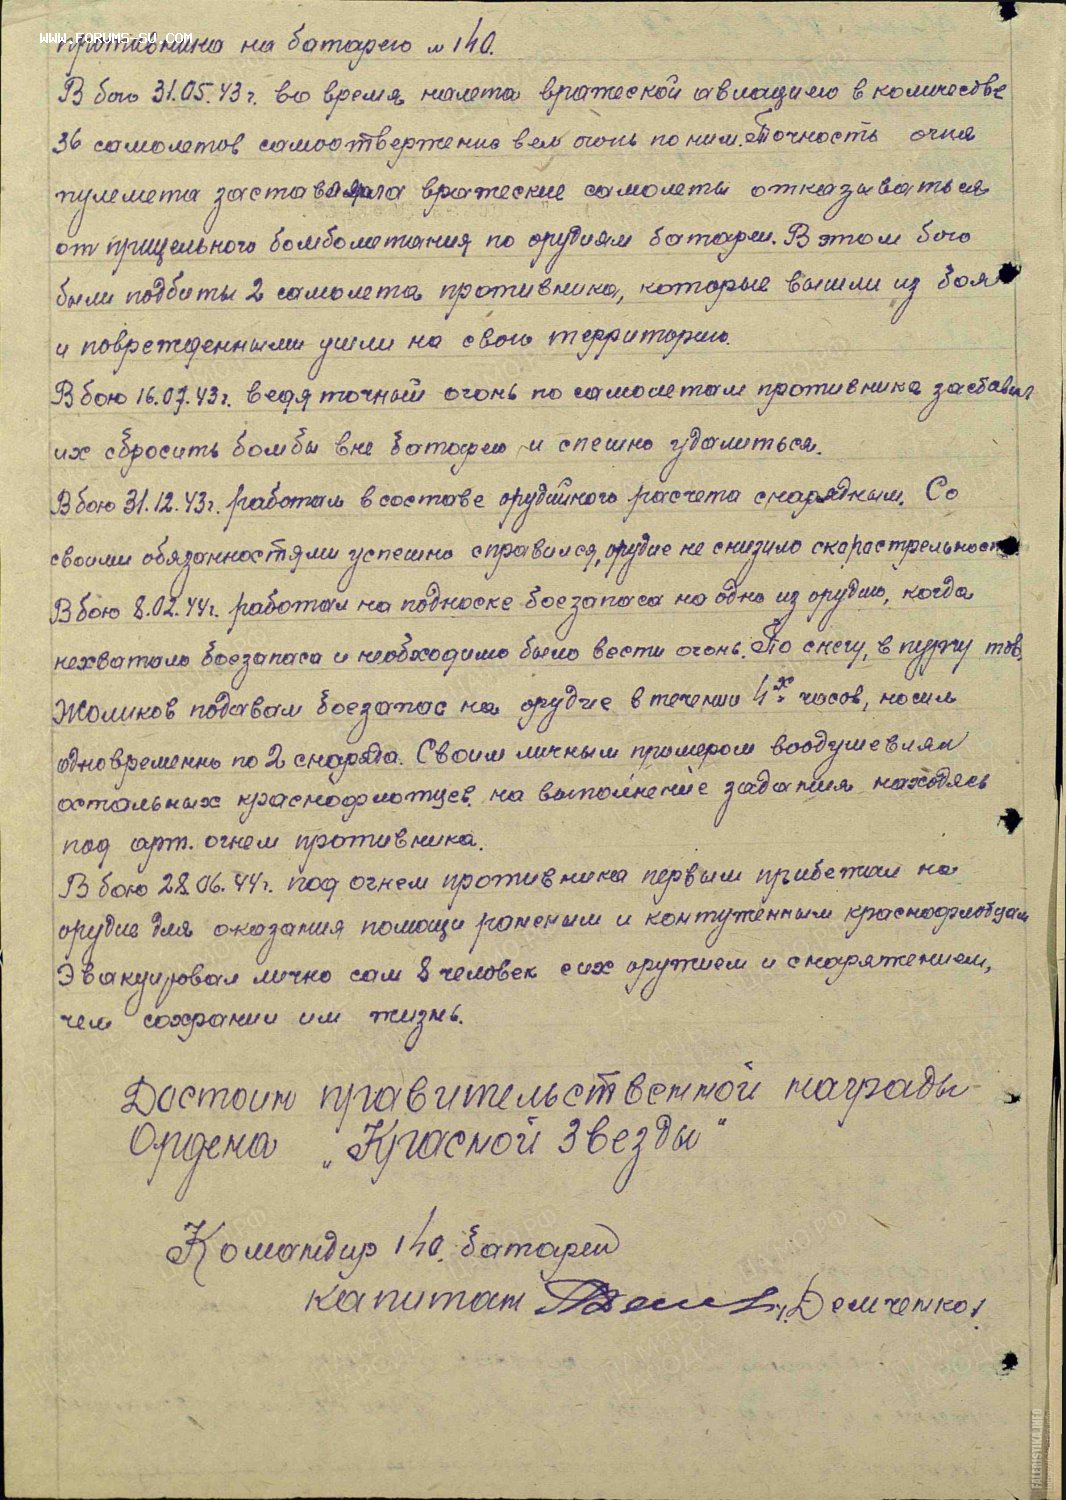 WWW.FORUMS-SU.COM
противника на батарею № 140.
В бою 31.05.43г. во время налета вражеской авиацию в количестве
36 самолетов самоотвержение вел огонь по ним. Точность огня
пулемета заставляла вражеские самолеты отказываться
от прицельного бомбометания по орудиям батареи. В этом бою
были подбиты 2 самолета противника, которые вышли из боя
и поврежденными ушли на свою территорию.
В бою 16.07.43г. ведя точный огонь по самолетам противника заставил
их сбросить бомбы вне батарею и спешно удалиться.
В бою 31.12.43г. работал в составе орудийного расчета снарядным. Со
своими обязанностями успешно справился, орудие не снизило скорастрельность.
В бою 8.02.44г. работал на подноске боезапаса на одно из орудию, когда
нехватало боезапаса и необходимо было вести огонь. По снегу, в пургу тов.
Жоликов подавал боезапас на орудие в течении 4х часов, носил
одновременно по 2 снаряда. Своим личным примером воодушевлял
остальных краснофлотцев на выполнение задания находясь
под арт. огнем противника.
В бою 28.06.44г. под огнем противника первым прибежал на
орудие для оказания помощи раненым и контуженным краснофлотцам
Эвакуировал лично сам 8 человек с их оружием и снаряжением,
чем сохранил им жизнь.
Достоин правительственной награды
Ордена „Красной Звезды"
Командир 140. батареи
капитан /Демченко/.
FALERISTIKA.INFO